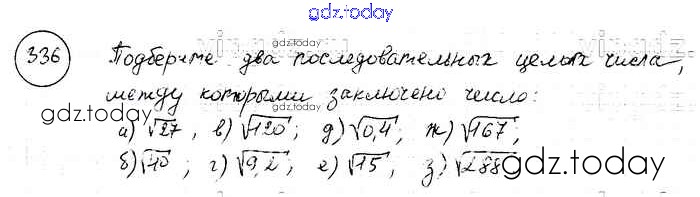 gdz.today
336 Подберите два последовательных целых числа,
gdz.today
между которыми заключено число:
gdz.today
gdz.today
а) √27, в) √120; д) √0,4; ж) √167;
б) √40; г) √9,2; е) √15; з) √288
gdz.today
gdz.today